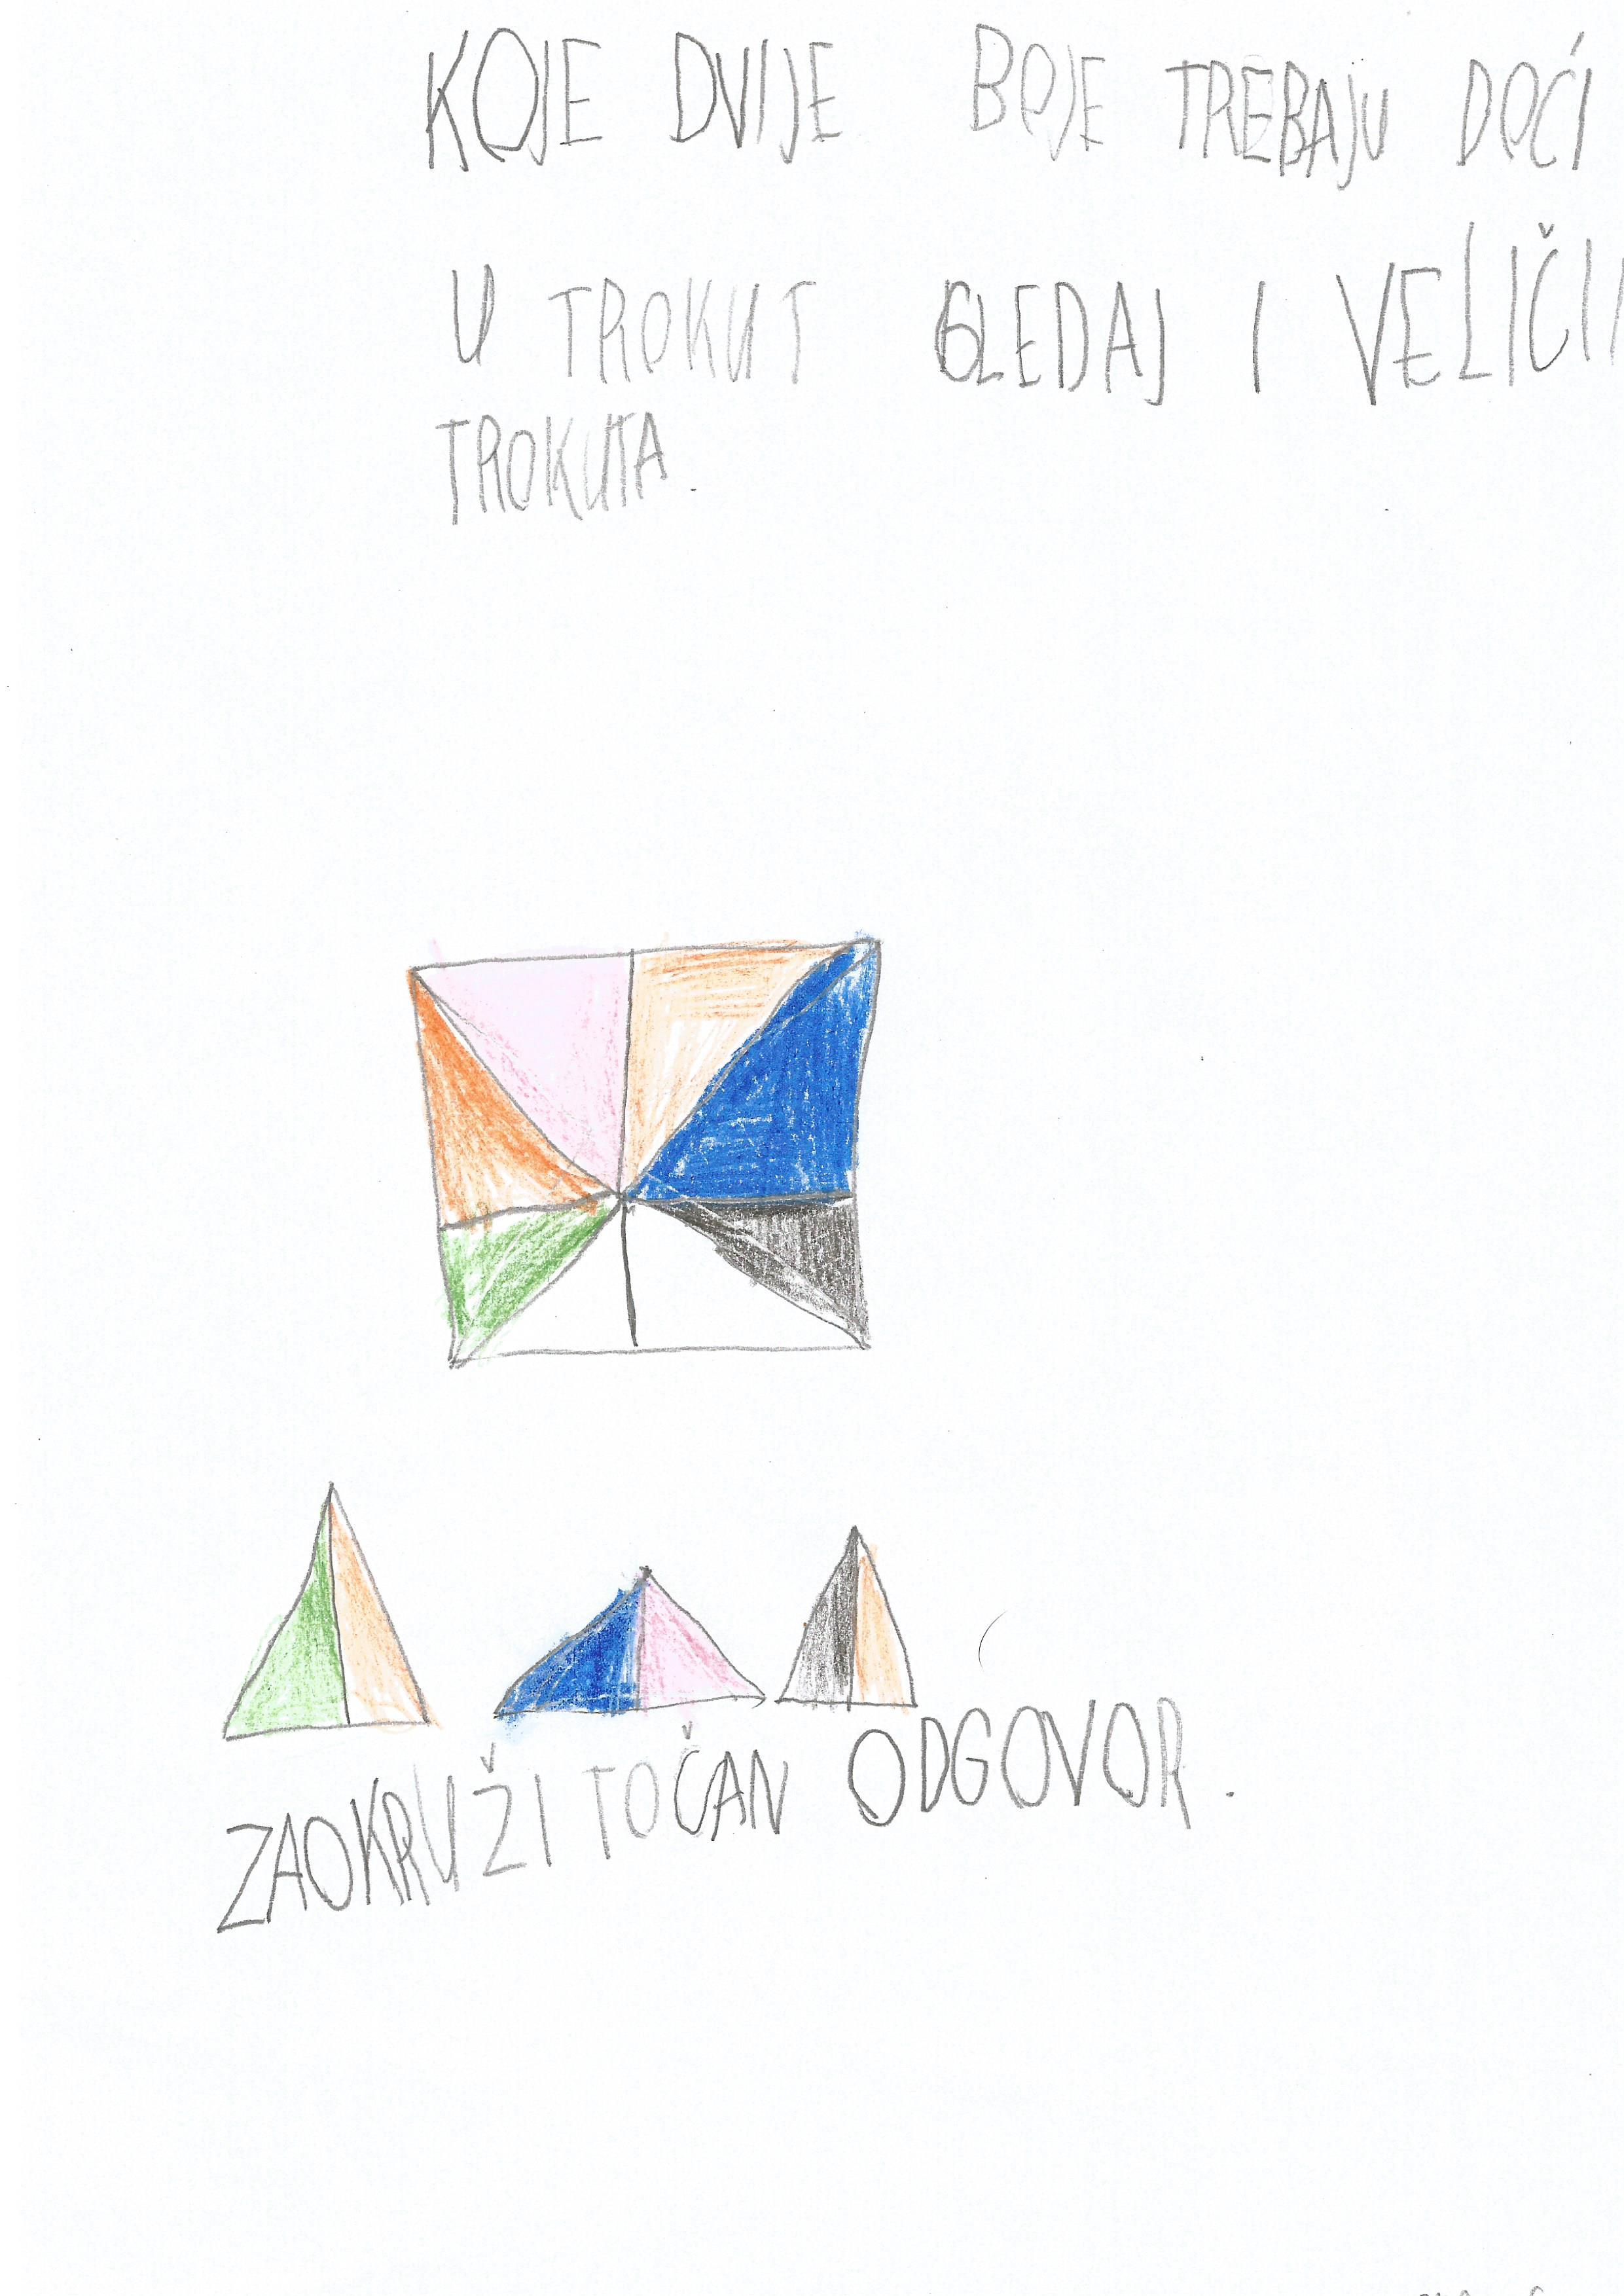 KOJE DVIJE BOJE TREBAJU DOĆI
U TROKUT GLEDAJ I
TROKUTA.
ZAOKRUŽI TOČAN ODGOVOR.